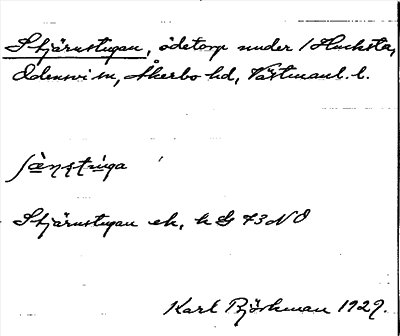 Stjärnstugan, ödetorp under Hucksta,
Odensvi sn, Åkerbo hd, Västmanl. l.
Stjärnstugan ek, h G 73 NO
Karl Björkman 1929.